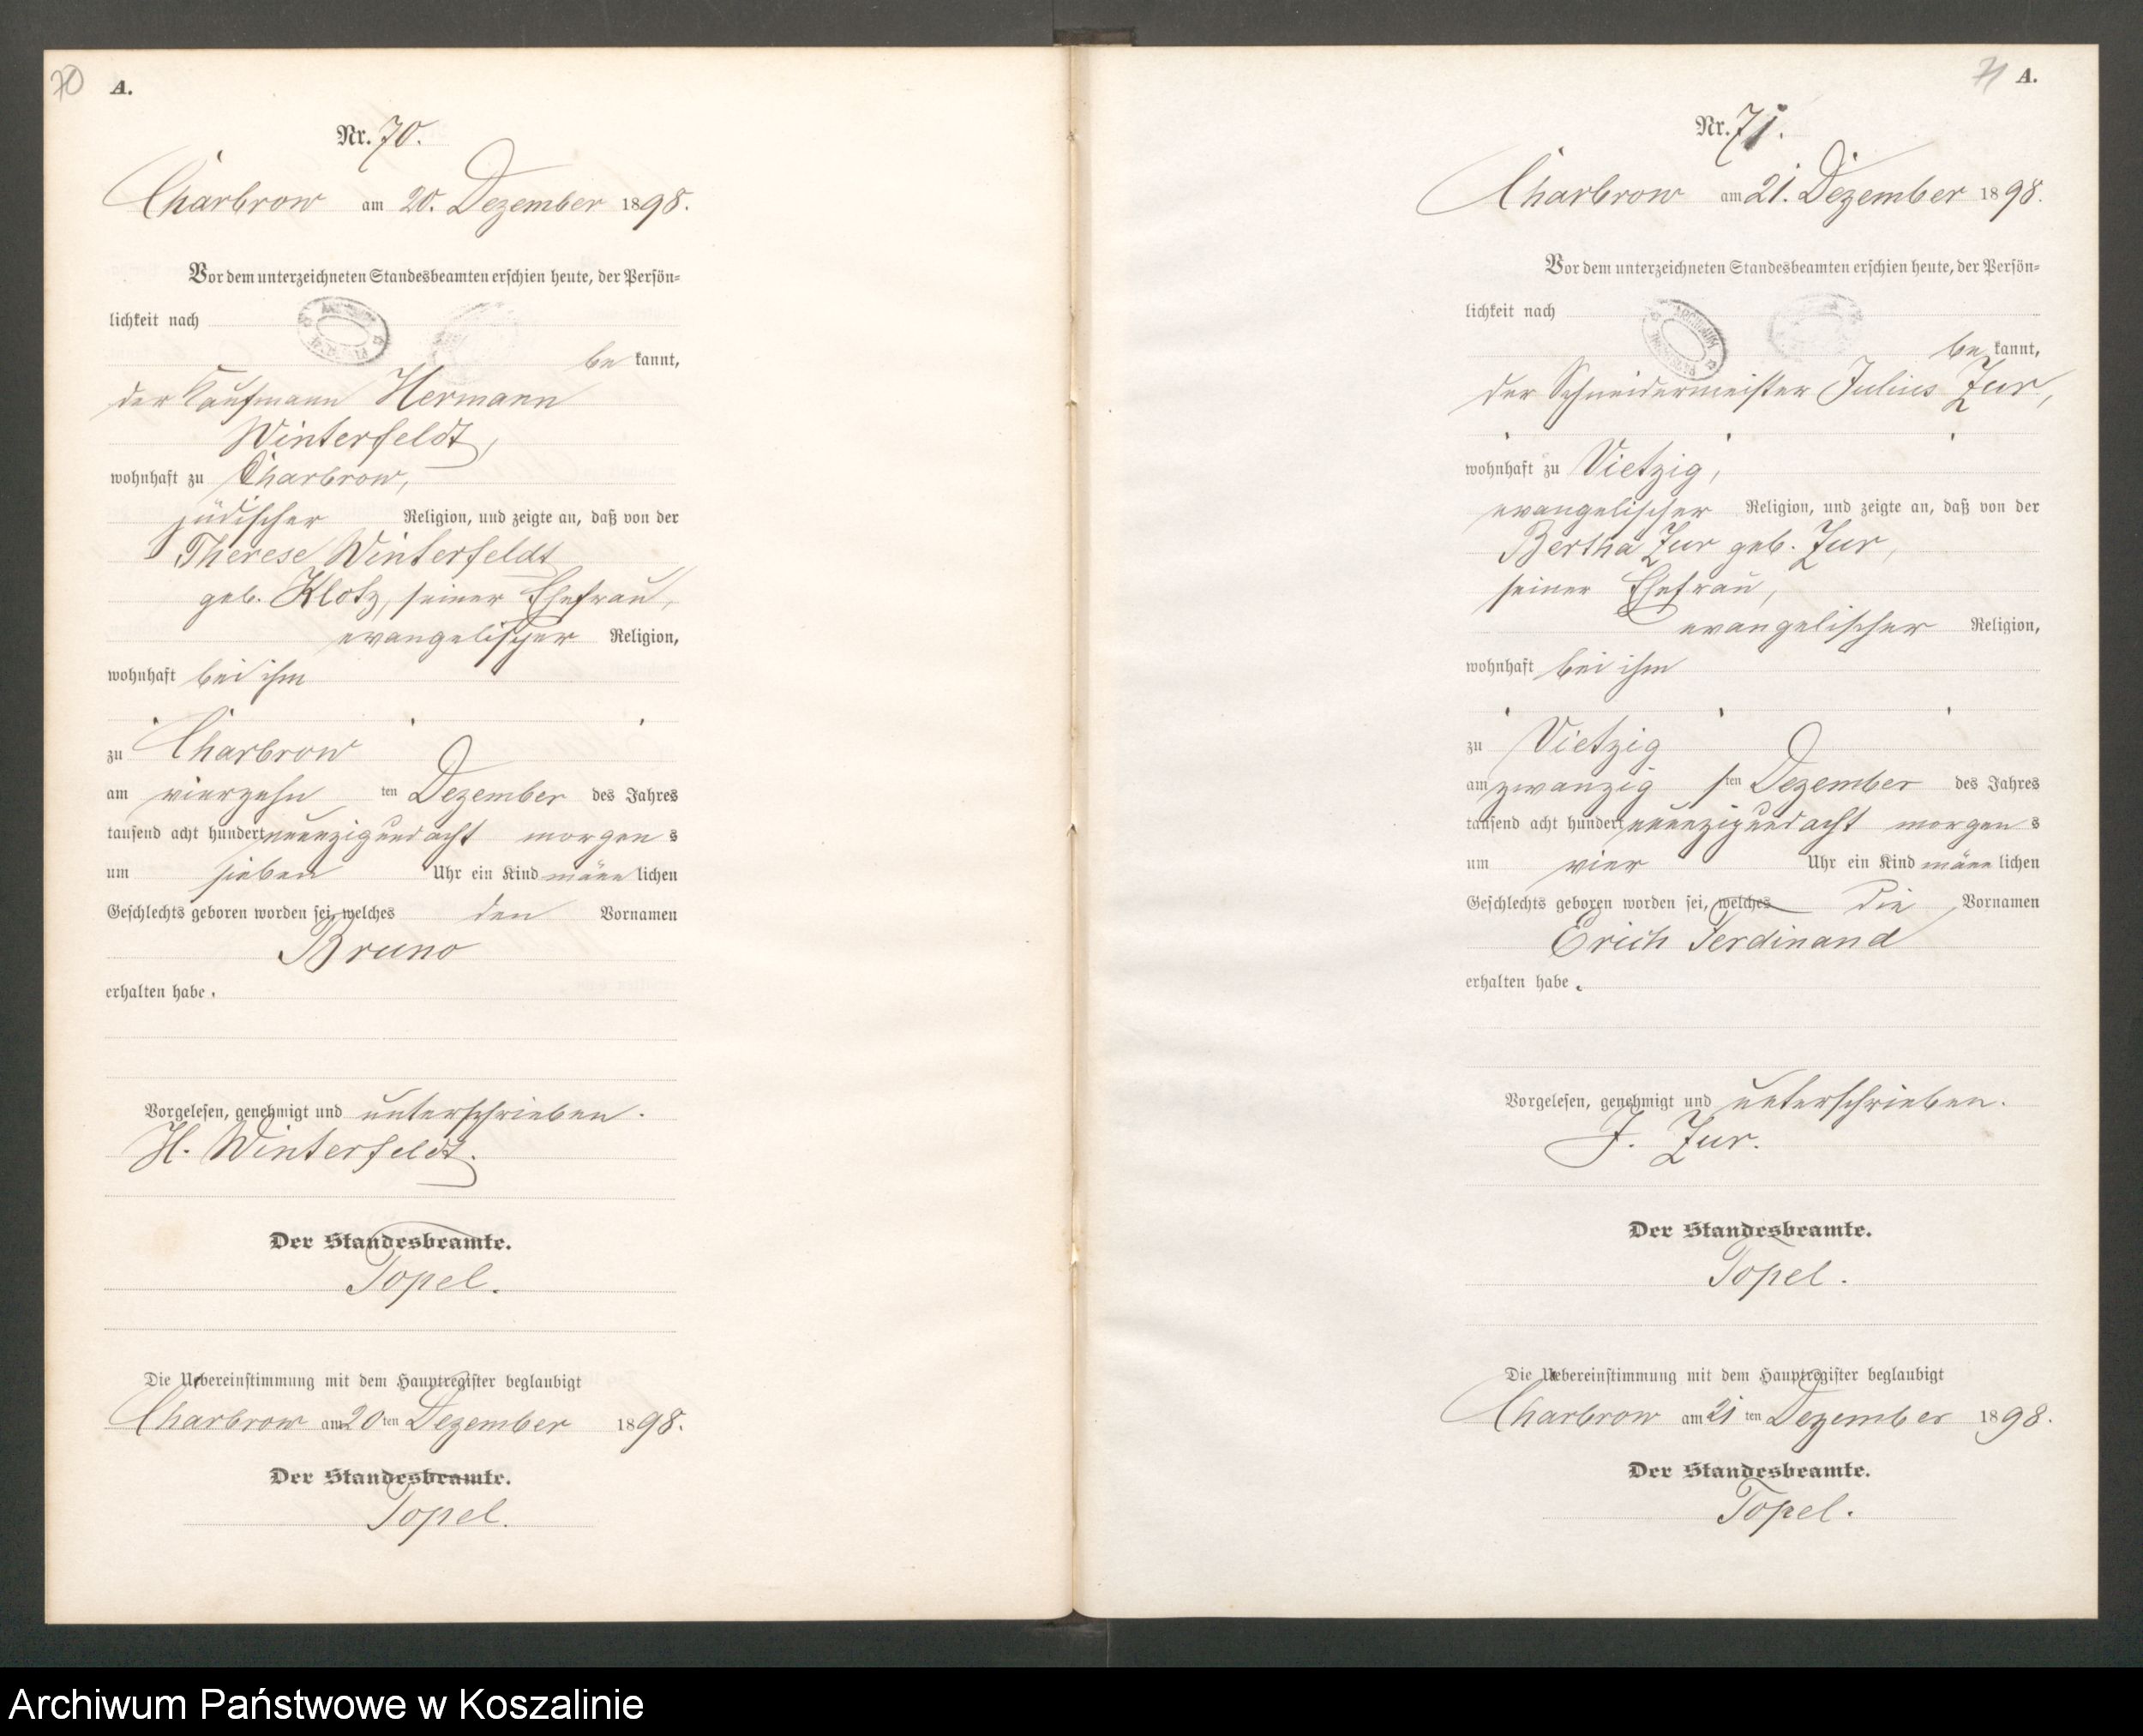 70
A.
Nr. 70.
Charbrow am 20. Dezember 1898.
Vor dem unterzeichneten Standesbeamten erschien heute, der Persön=
lichkeit nach
be kannt,
der Kaufmann Hermann
Winterfeldt,
wohnhaft zu Charbrow,
jüdischer Religion, und zeigte an, daß von der
Therese Winterfeldt
geb. Klotz, seiner Ehefrau,
evangelischer Religion,
wohnhaft bei ihm
zu Charbrow
am vierzehn ten Dezember des Jahres
tausend acht hundert neunzig und acht morgen s
um sieben Uhr ein Kind männ lichen
Geschlechts geboren worden sei, welches den Vornamen
Bruno
erhalten habe.
Vorgelesen, genehmigt und unterschrieben.
H. Winterfeldt.
Der Standesbeamte.
Topel.
Die Uebereinstimmung mit dem Hauptregister beglaubigt
Charbrow am 20 ten Dezember 1898.
Der Standesbeamte.
Topel.
71 A.
Nr. 71.
Charbrow am 21. Dezember 1898.
Vor dem unterzeichneten Standesbeamten erschien heute, der Persön=
lichkeit nach
be kannt,
der Schneidermeister Julius Zur,
wohnhaft zu Vietzig,
evangelischer Religion, und zeigte an, daß von der
Bertha Zur geb. Zur,
seiner Ehefrau,
evangelischer Religion,
wohnhaft bei ihm
zu Vietzig
am zwanzig sten Dezember des Jahres
tausend acht hundert neunzig und acht morgen s
um vier Uhr ein Kind männ lichen
Geschlechts geboren worden sei, welches die Vornamen
Erich Ferdinand
erhalten habe.
Vorgelesen, genehmigt und unterschrieben.
J. Zur.
Der Standesbeamte.
Topel.
Die Uebereinstimmung mit dem Hauptregister beglaubigt
Charbrow am 21 ten Dezember 1898.
Der Standesbeamte.
Topel.
Archiwum Państwowe w Koszalinie